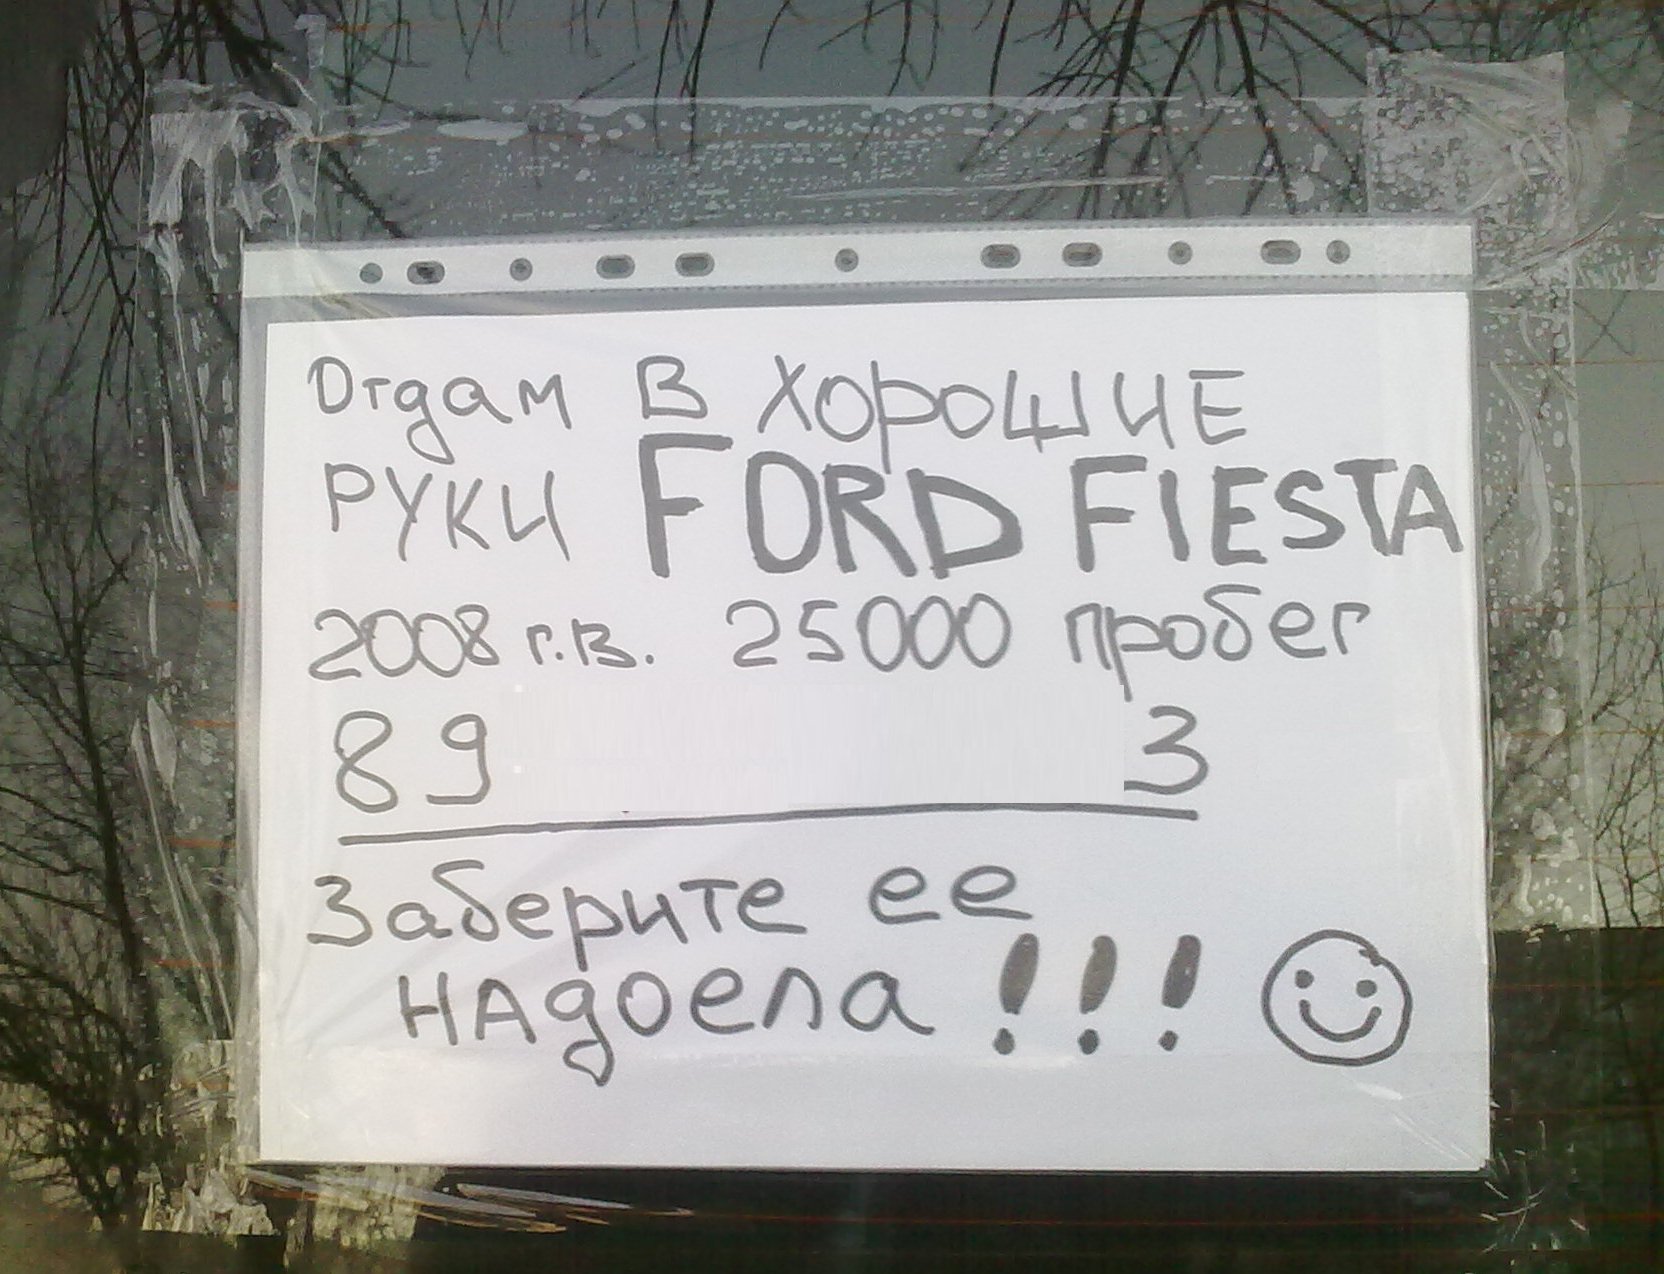 Отдам в хорошие
руки FORD FIESTA
2008 г.в. 25000 пробег
89 3
Заберите ее
надоела!!!